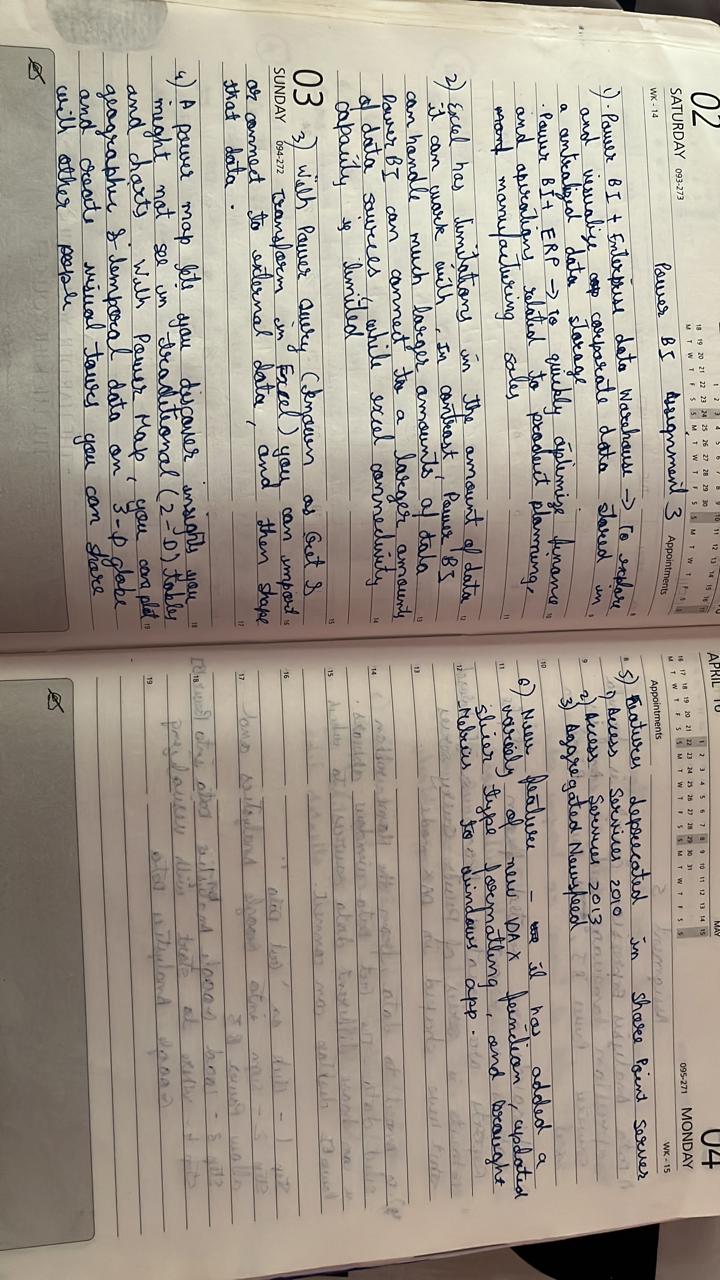 02
SATURDAY 093-273
WK - 14
Appointments
Power BI Assignment 3
1) · Power BI + Enterprise data Warehouse → To explore
and visualize corporate data stored in
a centralized data storage
· Power BI + ERP → To quickly optimise finance
and operations related to product planning,
manufacturing sales
2) Excel has limitations in the amount of data
it can work with. In contrast, Power BI
can handle much larger amounts of data
Power BI can connect to a larger amount
of data sources, while excel connectivity
capacity is limited
03
SUNDAY 094-272
3) With Power Query (known as Get &
Transform in Excel) you can import
or connect to external data, and then shape
that data.
4) A power map lets you discover insights you
might not see in traditional (2-D) tables
and charts. With Power Map, you can plot
geographic & temporal data on 3-D globe
and create visual tours you can share
with other people
APRIL
MAY
04
095-271 MONDAY
WK - 15
Appointments
5) Features deprecated in Share Point Server
1) Access Services 2010
2) Access Services 2013
3) Aggregated Newsfeed
6) New feature - it has added a
variety of new DAX function, updated
slicer type formatting, and brought
Metrics to windows app.